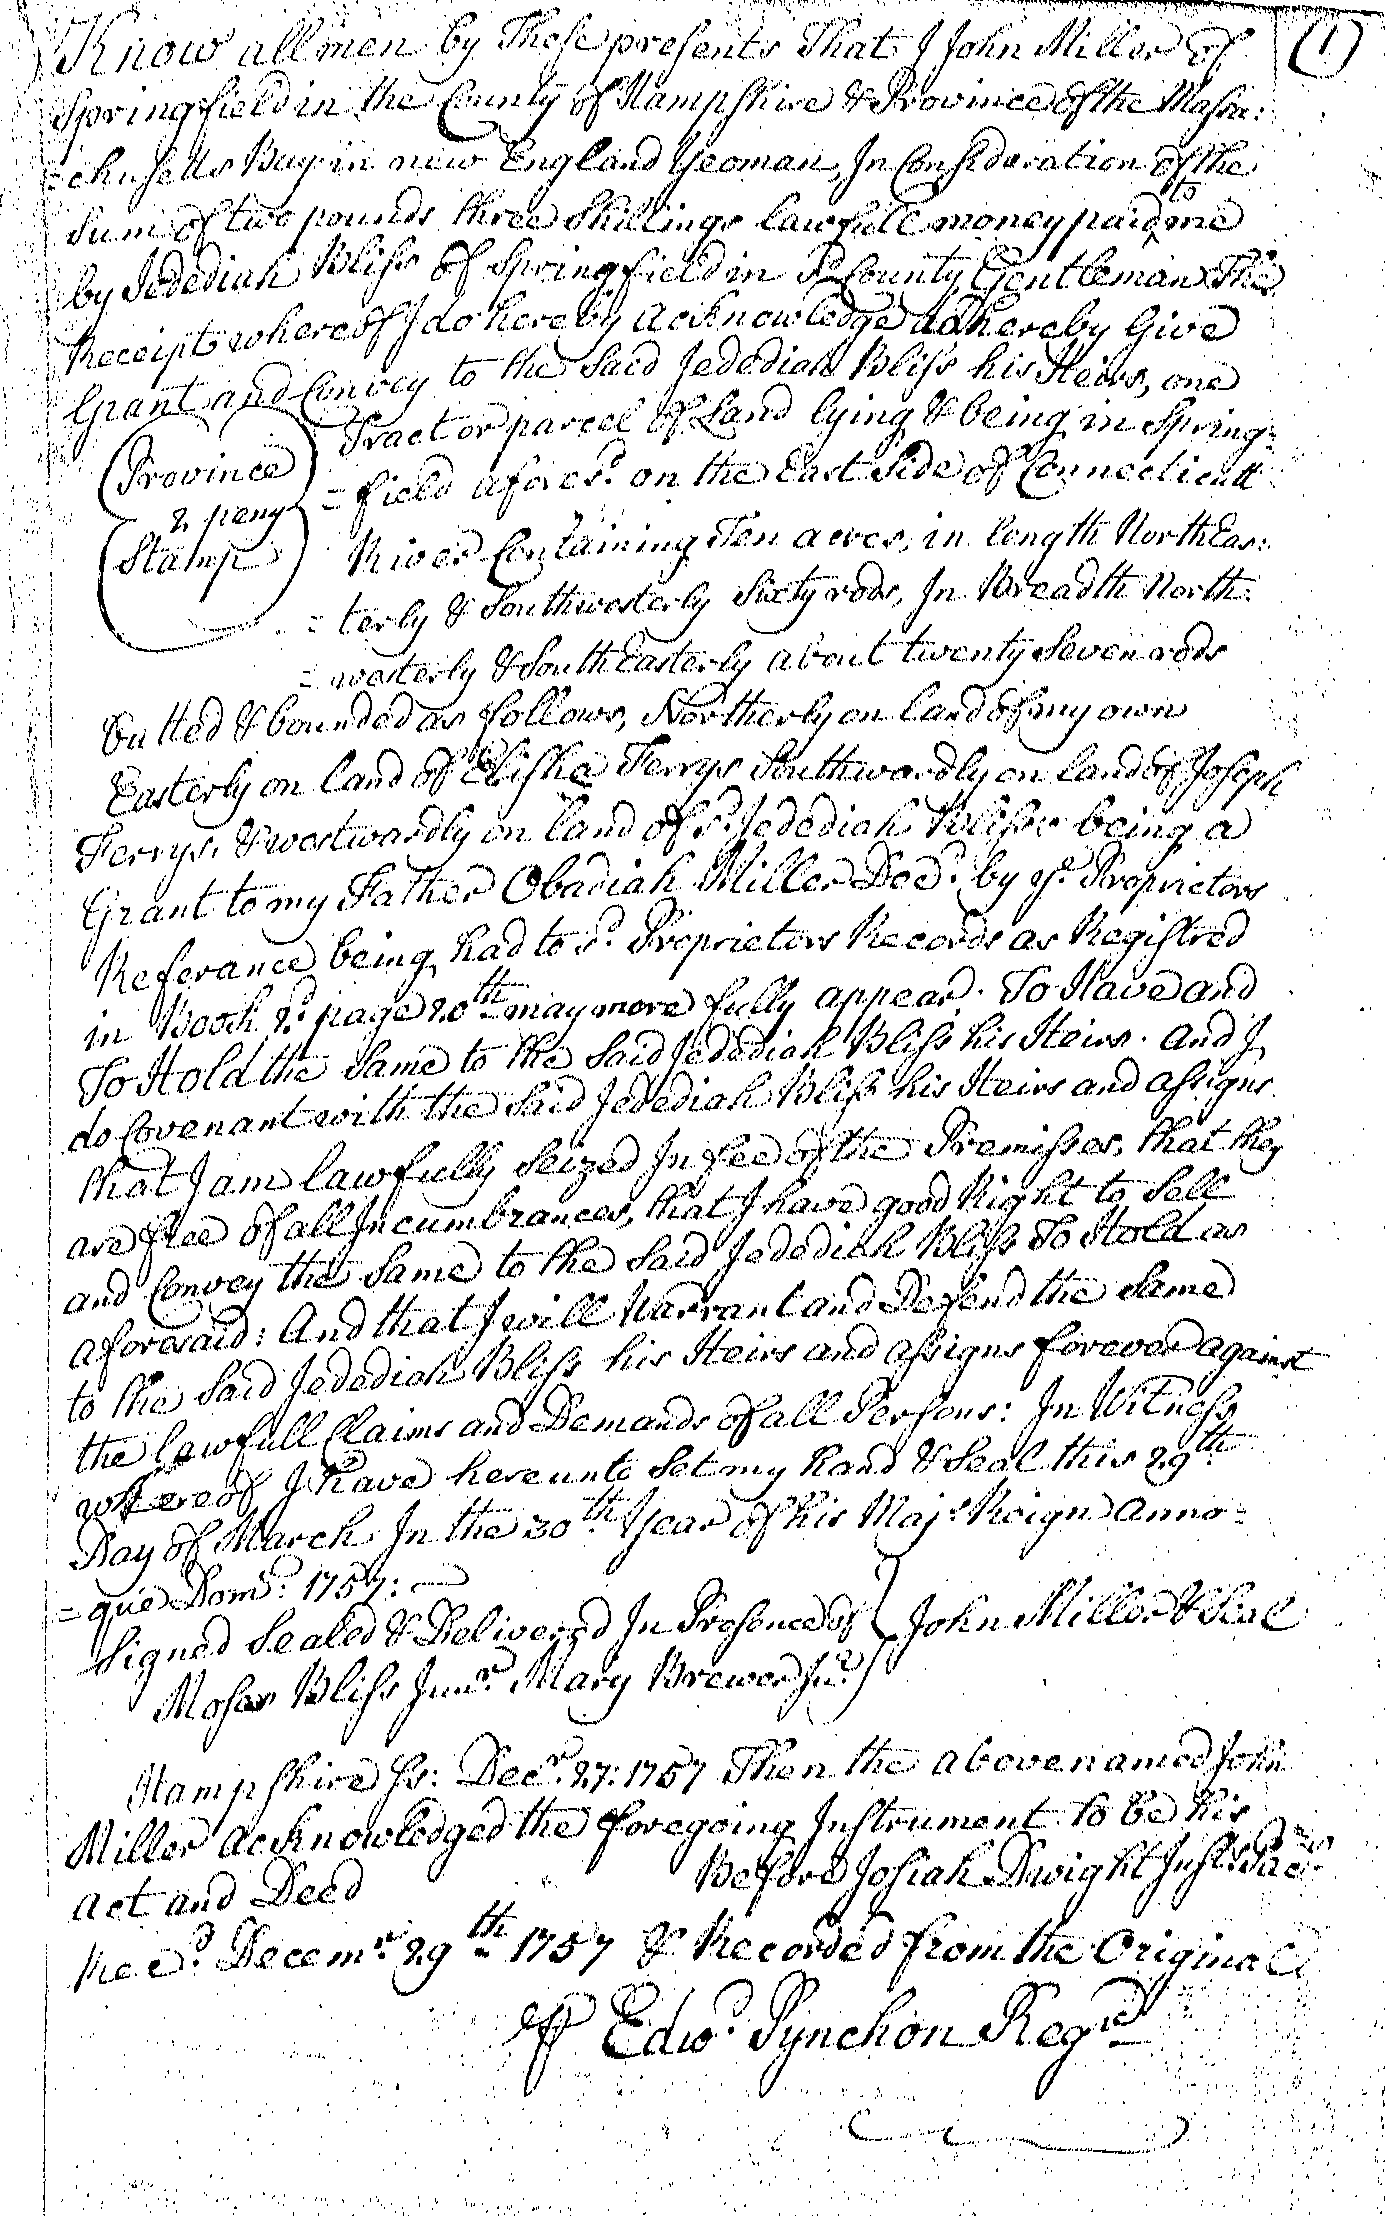 (1)
Know all men by These presents That I John Miller of
Springfield in the County of Hampshire & Province of the Massa:
=chusetts Bay in new England Yeoman, In Consideration of the
Sum of two pounds three Shillings lawfull money paid to me
by Jedediah Bliss of Springfield in sd. County Gentleman The
Receipt whereof I do hereby acknowledge do hereby Give
Grant and Convey to the Said Jedediah Bliss his Heirs, one
Tract or parcel of Land lying & being in Spring=
(Province
=field afores.d on the East Side of Connecticutt
2 peny
Stamp)
River Containing Ten acres, in length North Eas:
=terly & Southwesterly Sixty rods, In Breadth North:
=westerly & South Easterly about twenty Seven rods
butted & bounded as follows, Northerly on land of my own
Easterly on land of Elisha Ferrys Southwardly on land of Joseph
Ferrys. & westwardly on land of s.d Jedediah Bliss being a
Grant to my Father Obadiah Miller Dec.d by ye. Proprietors
Referance being had to s.d Proprietors Records as Registred
in Book 2.d page 20th may more fully appear. To Have and
To Hold the Same to the Said Jedediah Bliss his Heirs. And I
do Covenant with the Said Jedediah Bliss his Heirs and assigns
that I am lawfully Seized In fee of the Premisses, that they
are free of all Incumbrances, that I have good Right to Sell
and Convey the Same to the Said Jedediah Bliss To Hold as
aforesaid: And that I will Warrant and Defend the Same
to the Said Jedediah Bliss his Heirs and assigns forever against
the lawfull Claims and Demands of all Persons: In Witness
whereof I have hereunto Set my hand & Seal this 29th
Day of March In the 30th Year of his Maj.s Reign anno=
=que Dom.i: 1757: —
Signed Sealed & Delivered In Presence of } John Miller & Seal
Moses Bliss Jun.r Mary Brewer Ju.r
Hampshire Ss: Dec.r 27: 1757 Then the abovenamed John
Miller acknowledged the foregoing Instrument to be his
act and Deed Before Josiah Dwight Just.s Pacis
Rec.d Decem.r 29th 1757 & Recorded from the Original
⅌ Edw.d Pynchon Reg.r